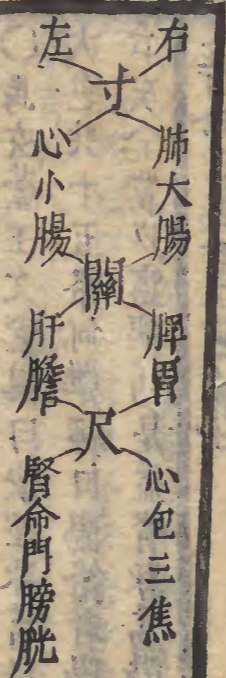 右
左
寸
肺大腸
心小腸
關
脾胃
肝膽
尺
心包三焦
腎命門膀胱